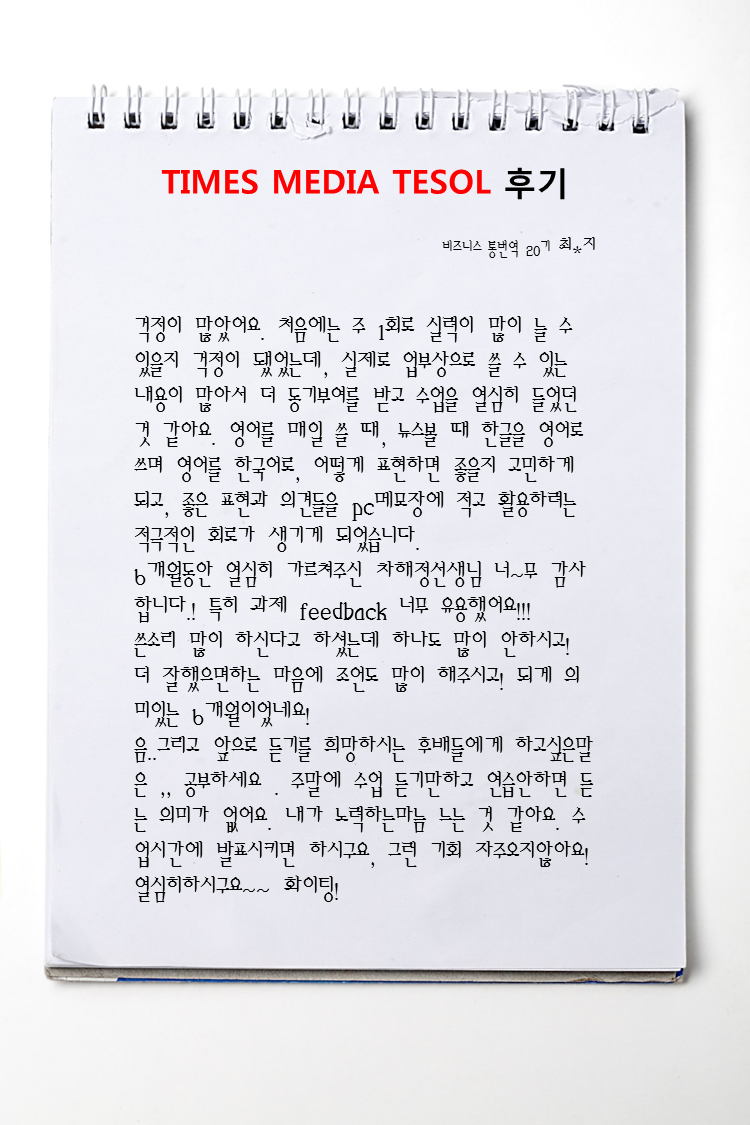 TIMES MEDIA TESOL 후기
비즈니스 통번역 20기 최*지
걱정이 많았어요. 처음에는 주 1회로 실력이 많이 늘 수
있을지 걱정이 됐었는데, 실제로 업무상으로 쓸 수 있는
내용이 많아서 더 동기부여를 받고 수업을 열심히 들었던
것 같아요. 영어를 매일 쓸 때, 뉴스볼 때 한글을 영어로
쓰며 영어를 한국어로, 어떻게 표현하면 좋을지 고민하게
되고, 좋은 표현과 의견들을 pc메모장에 적고 활용하려는
적극적인 회로가 생기게 되었습니다.
6개월동안 열심히 가르쳐주신 차해정선생님 너~무 감사
합니다.! 특히 과제 feedback 너무 유용했어요!!!
쓴소리 많이 하신다고 하셨는데 하나도 많이 안하시고!
더 잘했으면하는 마음에 조언도 많이 해주시고! 되게 의
미있는 6개월이었네요!
음..그리고 앞으로 듣기를 희망하시는 후배들에게 하고싶은말
은 ,, 공부하세요 . 주말에 수업 듣기만하고 연습안하면 듣
는 의미가 없어요. 내가 노력하는만큼 느는 것 같아요. 수
업시간에 발표시키면 하시구요, 그런 기회 자주오지않아요!
열심히하시구요~~ 화이팅!